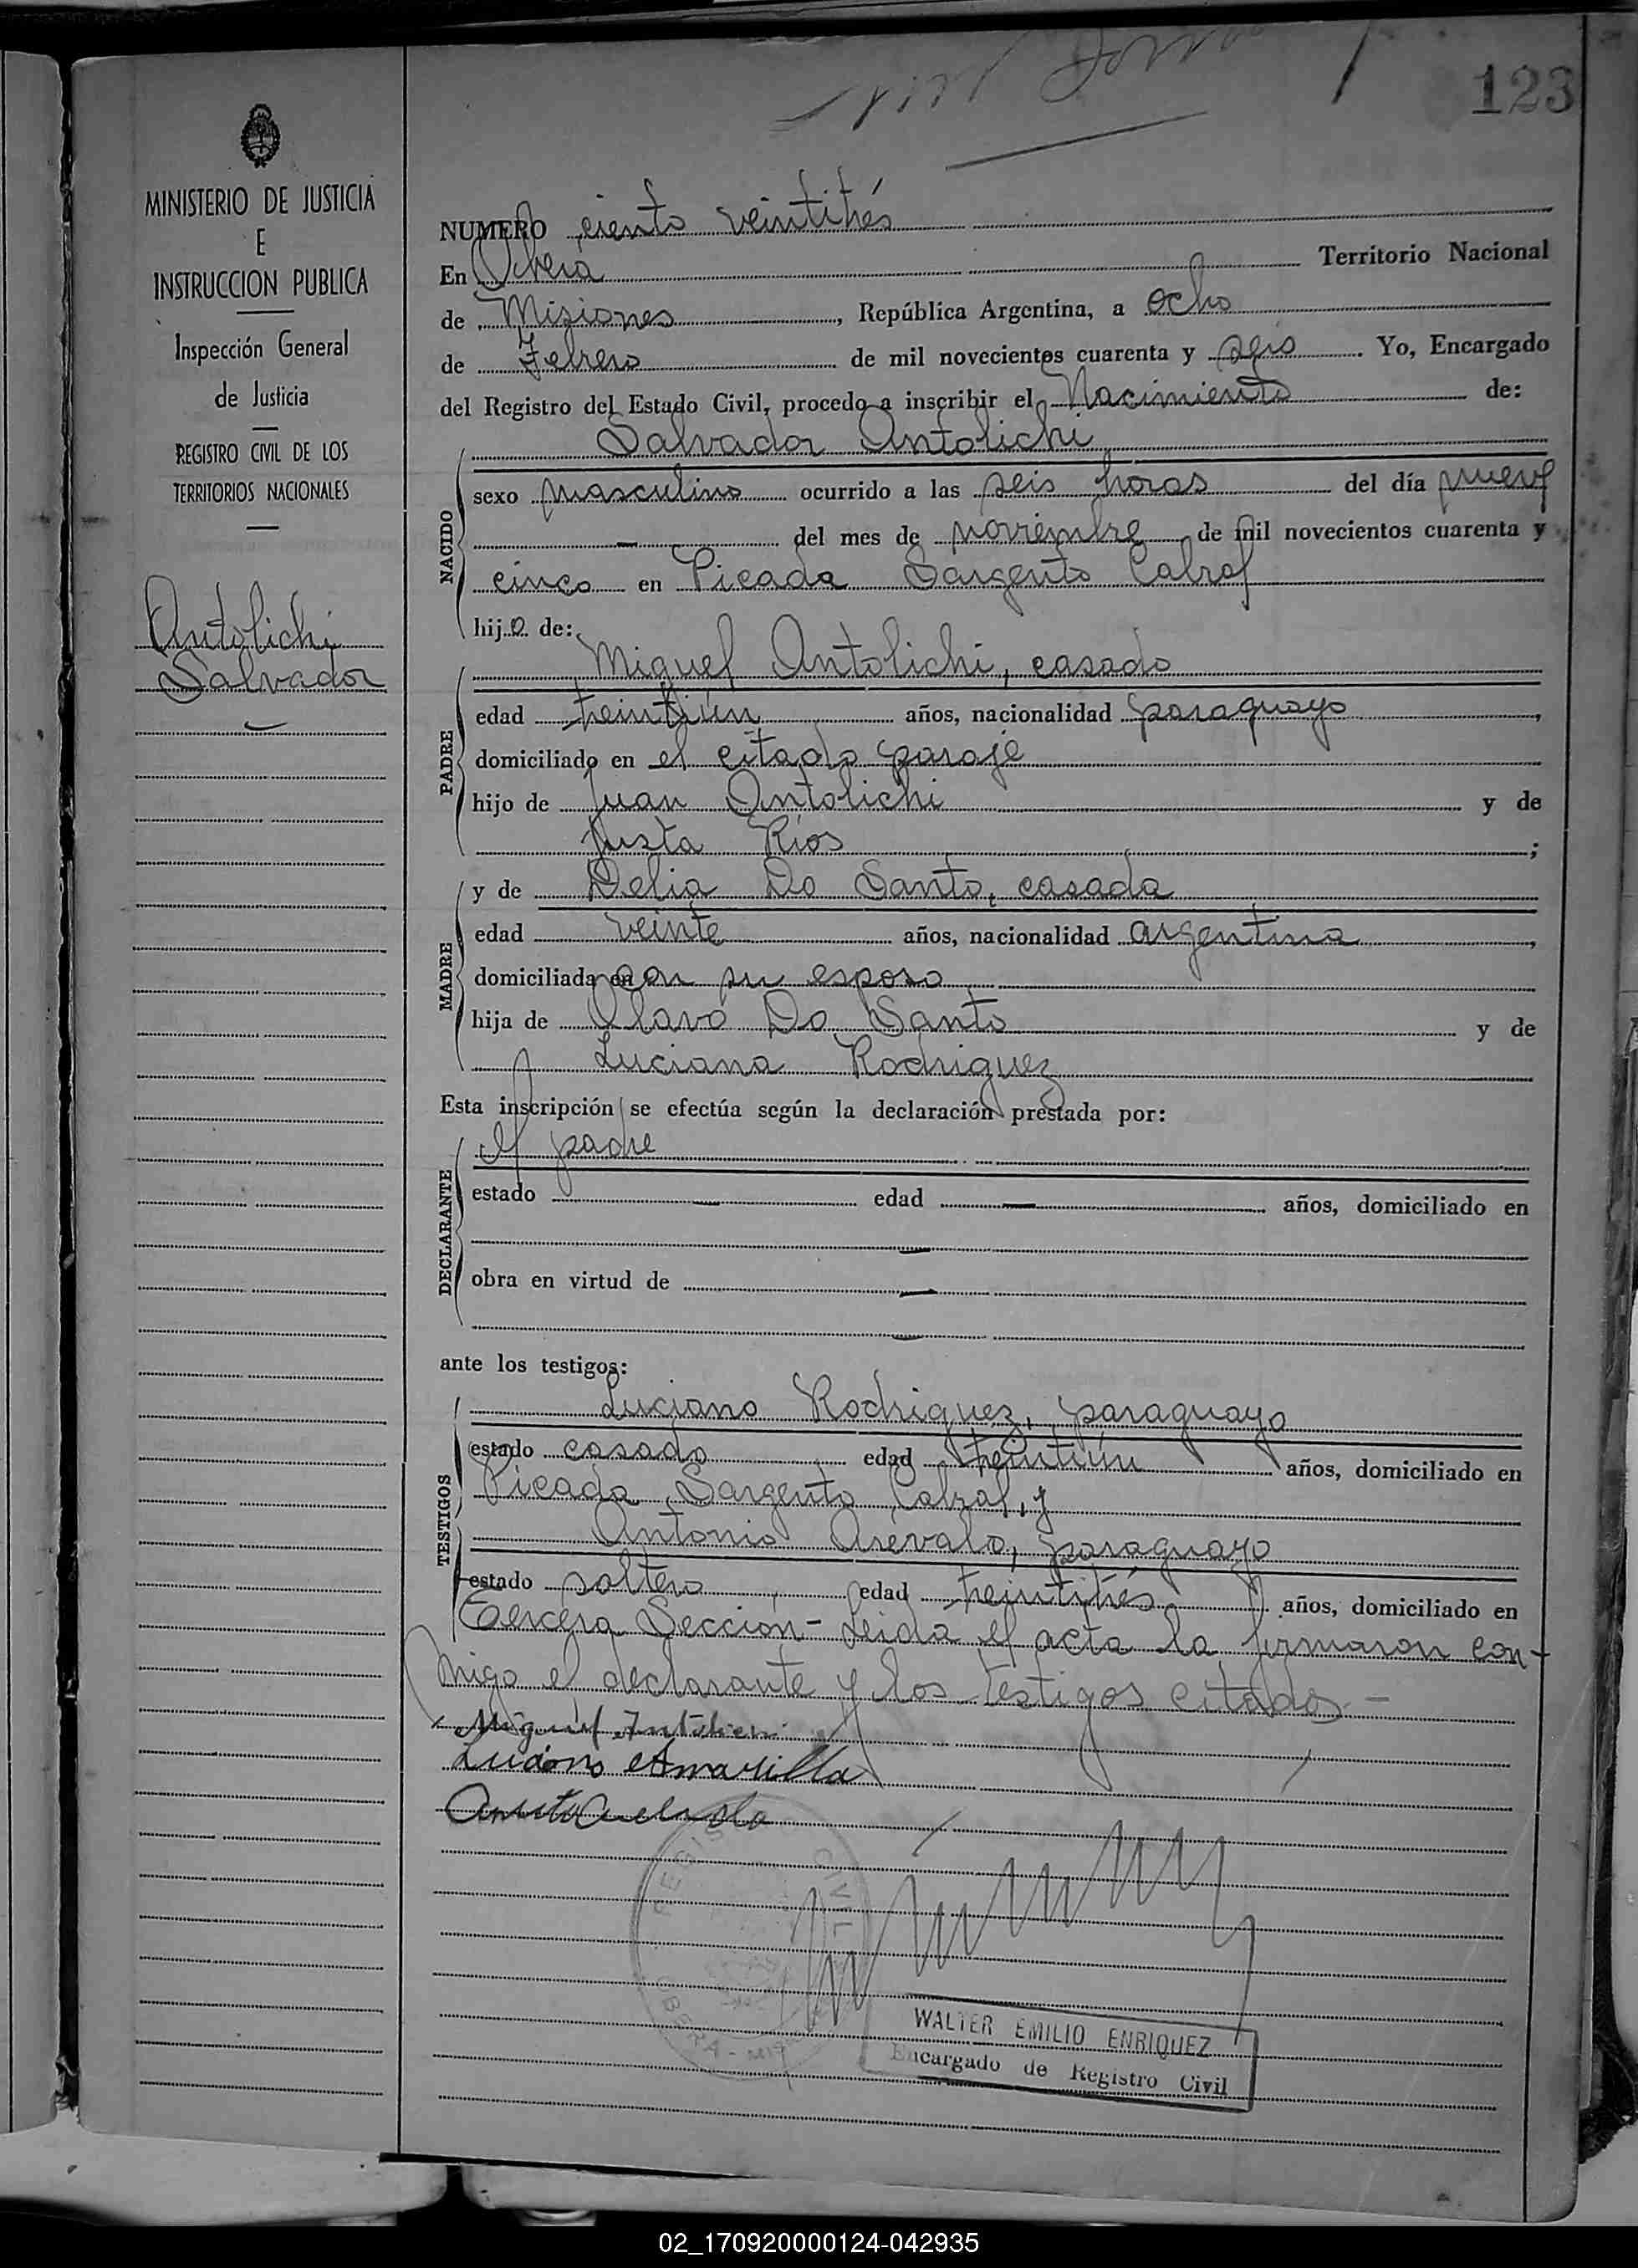 123
MINISTERIO DE JUSTICIA
E
INSTRUCCION PUBLICA
Inspección General
de Justicia
REGISTRO CIVIL DE LOS
TERRITORIOS NACIONALES
Antolichi
Salvador
NUMERO ciento veintitrés
En Oberá Territorio Nacional
de Misiones, República Argentina, a ocho
de Febrero de mil novecientos cuarenta y seis. Yo, Encargado
del Registro del Estado Civil, procedo a inscribir el Nacimiento de:
Salvador Antolichi
NACIDO
sexo masculino ocurrido a las seis horas del día nueve
— del mes de noviembre de mil novecientos cuarenta y
cinco en Picada Sargento Cabral
hijo de:
Miguel Antolichi, casado
PADRE
edad treintiún años, nacionalidad paraguayo,
domiciliado en el citado paraje
hijo de Juan Antolichi y de
Justa Ríos;
MADRE
y de Delia Do Santo, casada
edad veinte años, nacionalidad argentina,
domiciliada en con su esposo
hija de Olavo Do Santo y de
Luciana Rodriguez
Esta inscripción se efectúa según la declaración prestada por:
DECLARANTE
el padre
estado — edad — años, domiciliado en
—
obra en virtud de —
—
ante los testigos:
TESTIGOS
Luciano Rodriguez, paraguayo
estado casado edad treintiún años, domiciliado en
Picada Sargento Cabral, y
Antonio Arévalo, paraguayo
estado soltero edad treintitrés años, domiciliado en
Tercera Sección - Leida el acta la firmaron con-
migo el declarante y los testigos citados -
Miguel Antolichi
Luciano Amarilla
REGIS CIVIL
OBERA - MIS
WALTER EMILIO ENRIQUEZ
Encargado de Registro Civil
02_170920000124-042935